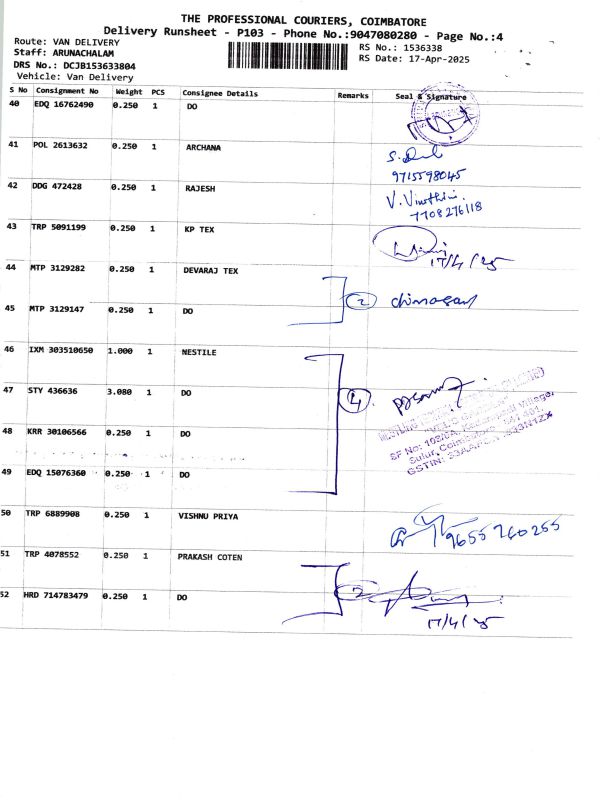 THE PROFESSIONAL COURIERS, COIMBATORE
Delivery Runsheet - P103 - Phone No.:9047080280 - Page No.:4
Route: VAN DELIVERY
Staff: ARUNACHALAM
DRS No.: DCJB153633804
Vehicle: Van Delivery
RS No.: 1536338
RS Date: 17-Apr-2025
S No Consignment No Weight PCS Consignee Details Remarks Seal & Signature
40 EDQ 16762490 0.250 1 DO
41 POL 2613632 0.250 1 ARCHANA
9715598045
42 DDG 472428 0.250 1 RAJESH V. Vinothini.
7708276118
43 TRP 5091199 0.250 1 KP TEX
17/4/25
44 MTP 3129282 0.250 1 DEVARAJ TEX
2
45 MTP 3129147 0.250 1 DO
46 IXM 303510650 1.000 1 NESTILE
47 STY 436636 3.080 1 DO 4
48 KRR 30106566 0.250 1 DO
49 EDQ 15076360 0.250 1 DO
50 TRP 6889908 0.250 1 VISHNU PRIYA
9655760255
51 TRP 4078552 0.250 1 PRAKASH COTEN
2
52 HRD 714783479 0.250 1 DO
17/4/25